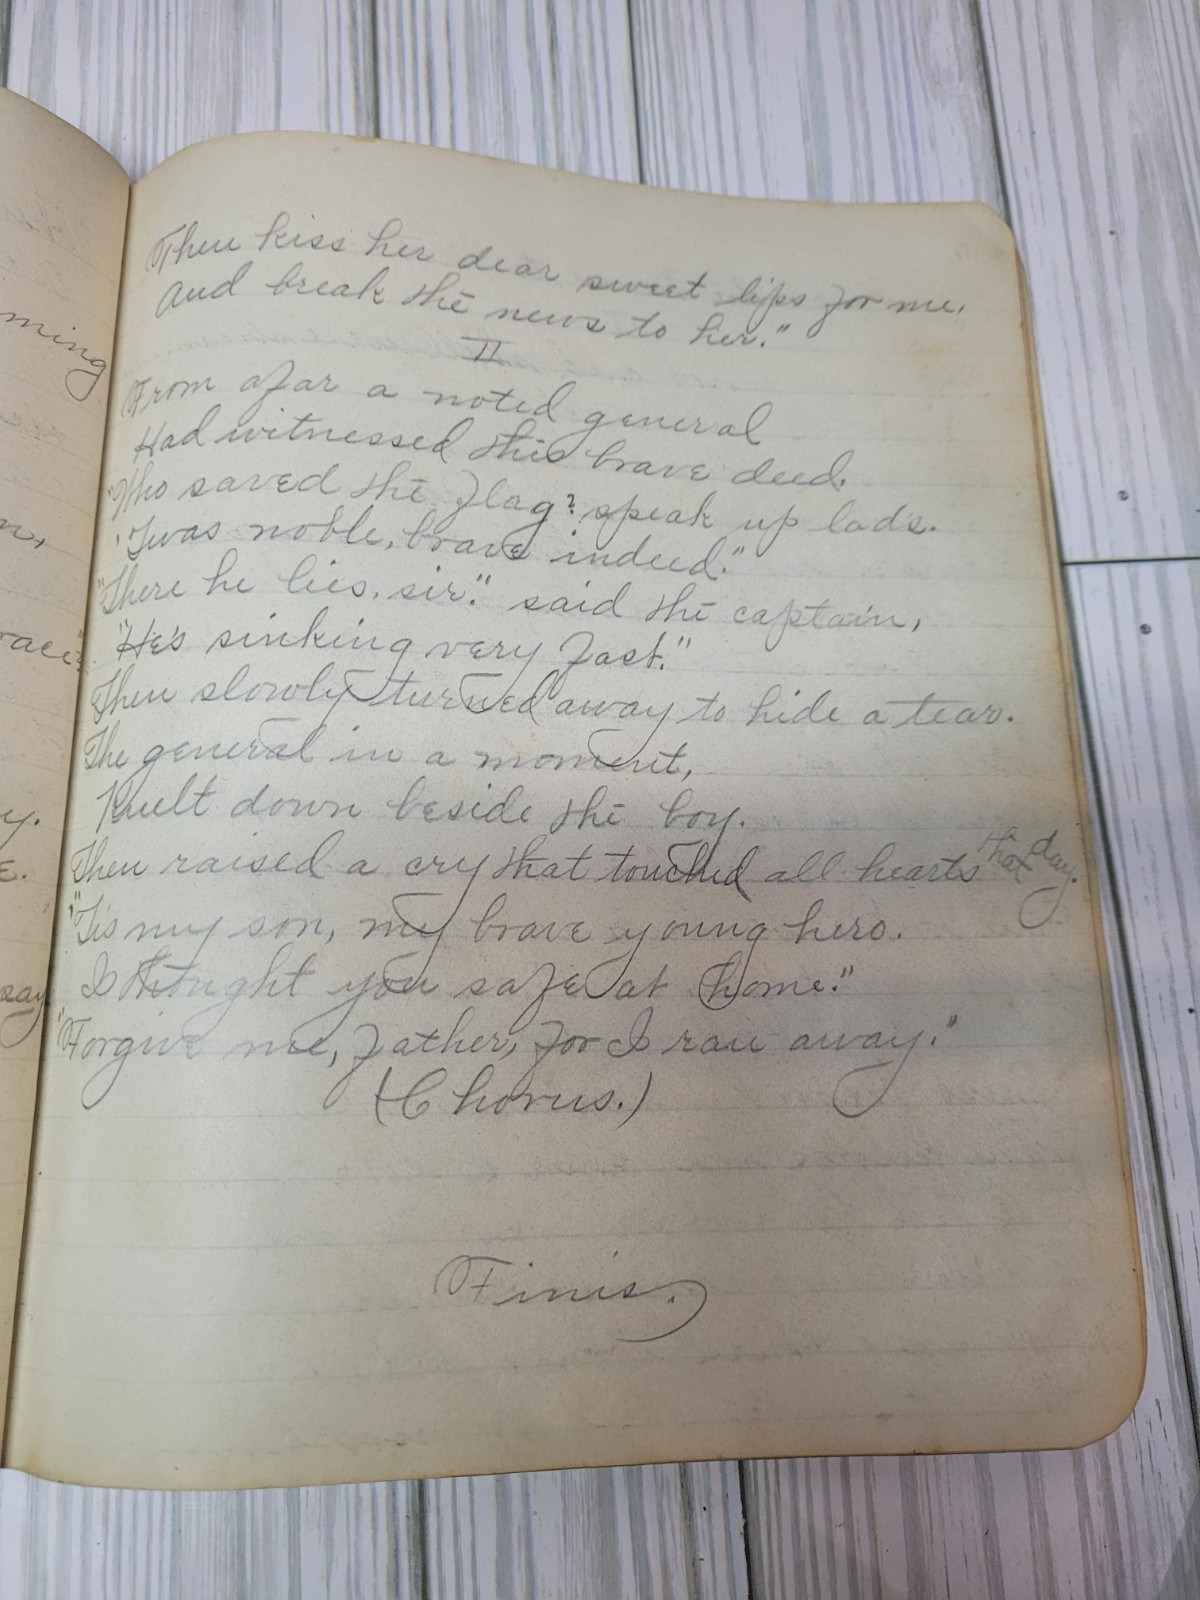 Then kiss her dear sweet lips for me,
And break the news to her."
II
From afar a noted general
Had witnessed this brave deed.
"Who saved the flag? speak up lads.
'Twas noble, brave indeed."
"There he lies, sir." said the captain,
"He's sinking very fast."
Then slowly turned away to hide a tear.
The general in a moment,
Knelt down beside the boy.
Then raised a cry that touched all hearts that day.
"Tis my son, my brave young hero.
I thought you safe at home."
"Forgive me, father, for I ran away."
(Chorus.)
Finis.
ming
n,
y.
E.
say